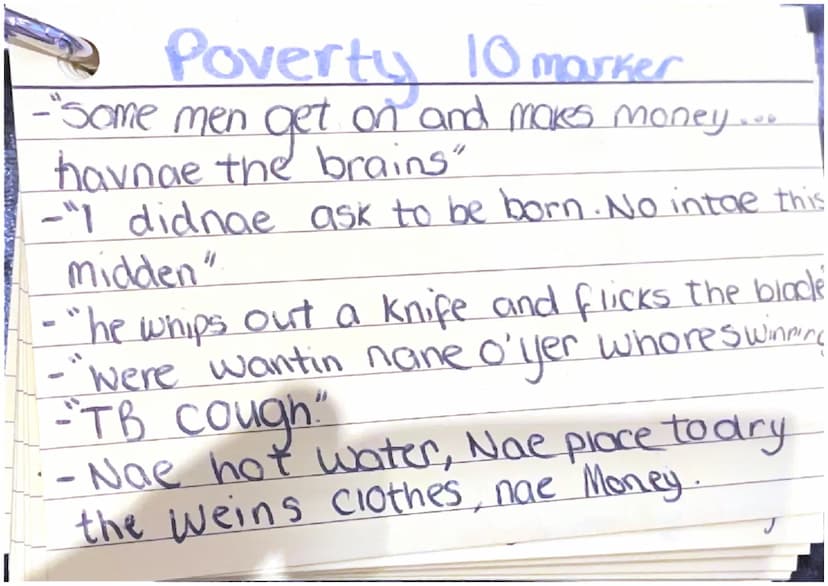 Poverty 10 marker
-"Some men get on and makes money...
havnae the brains"
-"I didnae ask to be born. No intae this
midden"
-"he whips out a knife and flicks the blade"
-"were wantin nane o'yer whores winning
-"TB cough"
- Nae hot water, Nae place to dry
the weins clothes, nae Money.